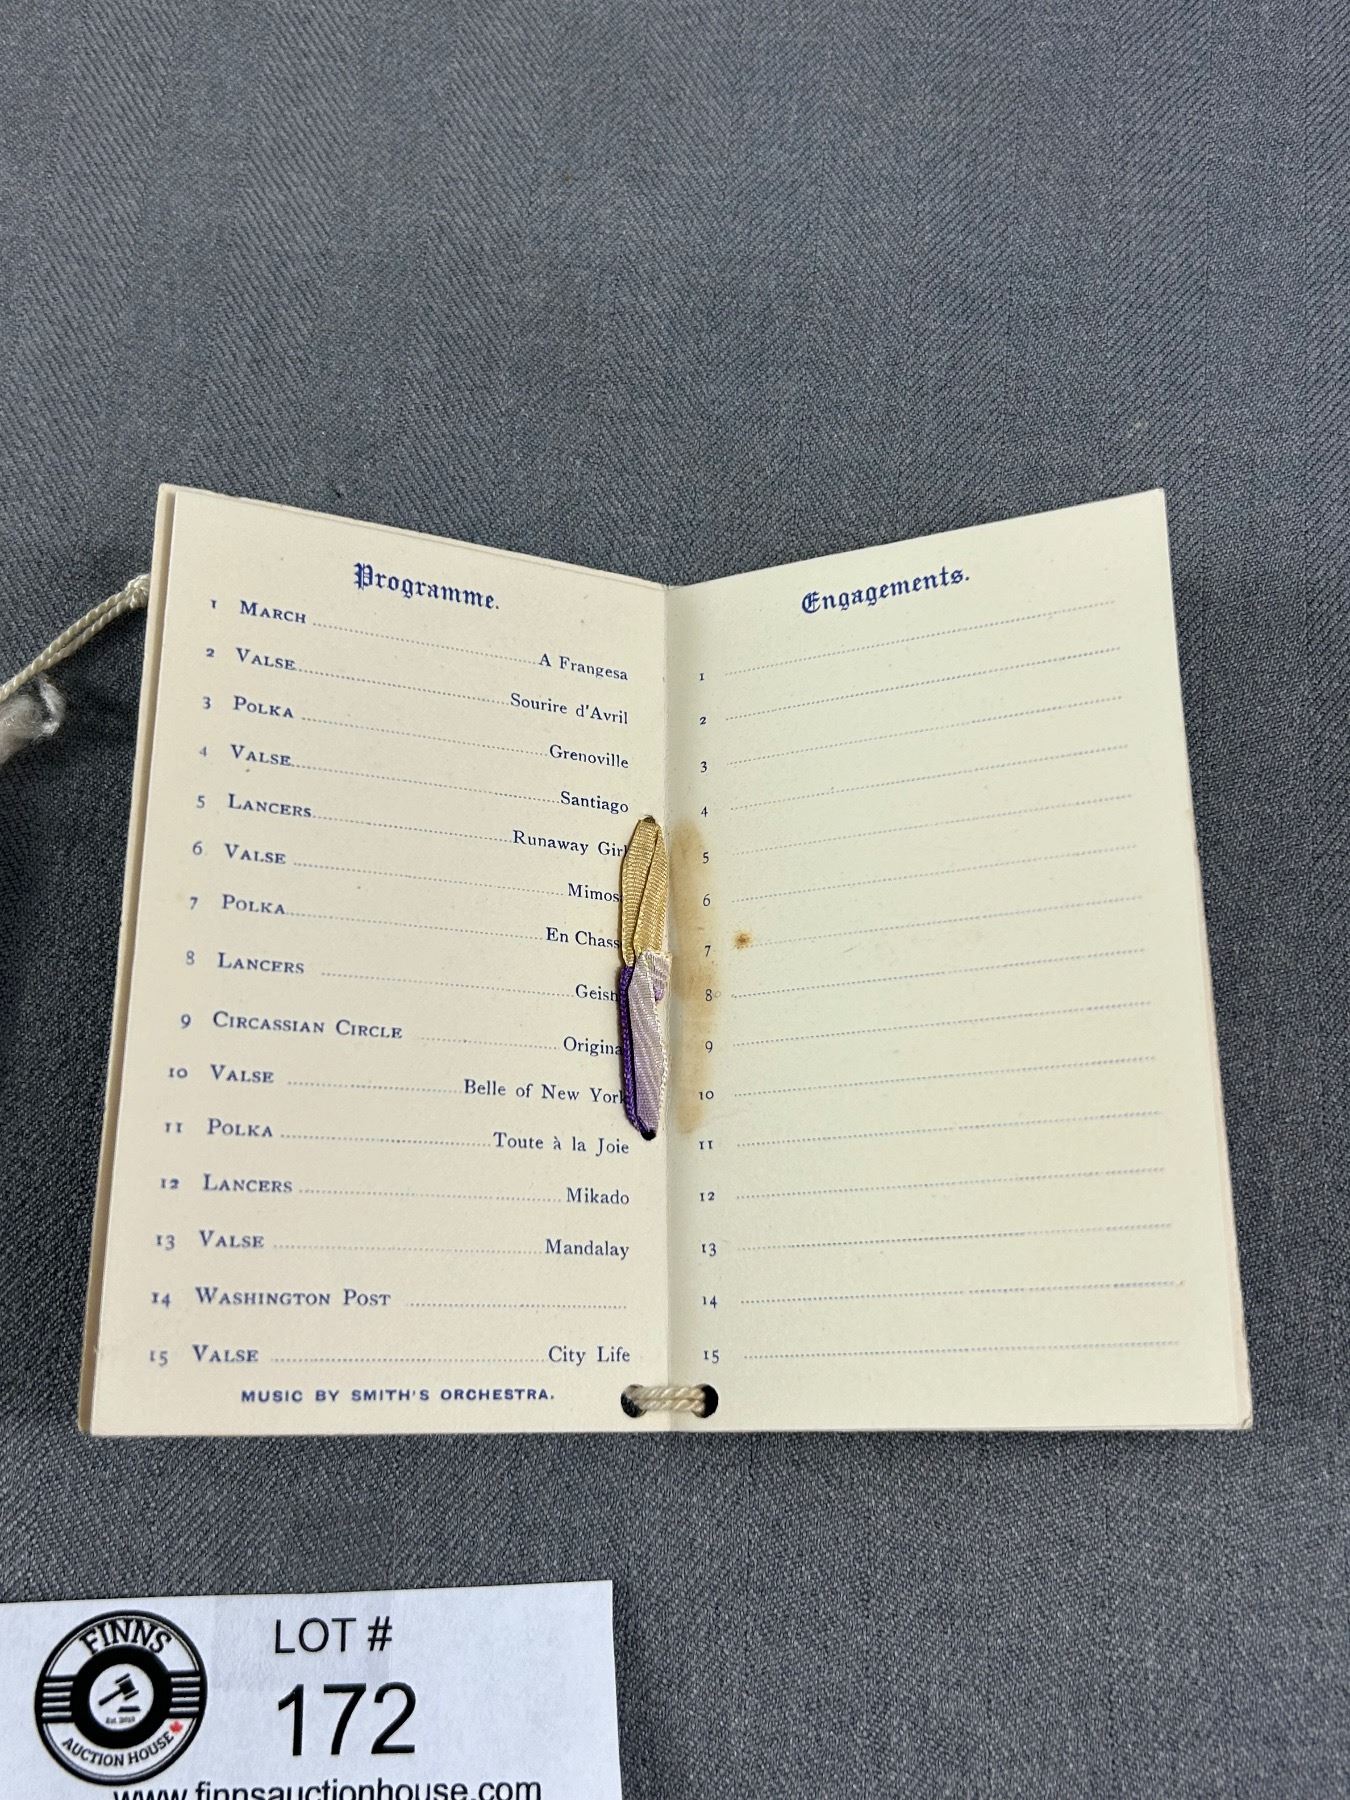 Programme.
1 March A Frangesa
2 Valse Sourire d'Avril
3 Polka Grenoville
4 Valse Santiago
5 Lancers Runaway Girl
6 Valse Mimos
7 Polka En Chass
8 Lancers Geish
9 Circassian Circle Origina
10 Valse Belle of New York
11 Polka Toute à la Joie
12 Lancers Mikado
13 Valse Mandalay
14 Washington Post
15 Valse City Life
MUSIC BY SMITH'S ORCHESTRA.
Engagements.
1
2
3
4
5
6
7
8
9
10
11
12
13
14
15
FINNS
Est. 2018
AUCTION HOUSE
LOT #
172
www.finnsauctionhouse.com